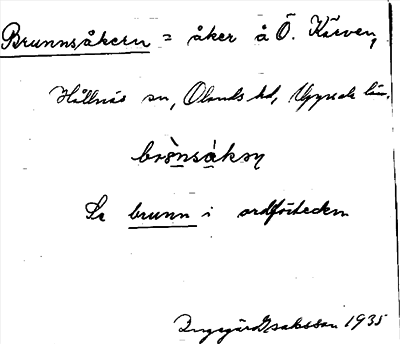 Brunnsåkern = åker å Ö. Kärven,
Hållnäs sn, Olands hd, Uppsala län.
brònsàkəɳ
Se brunn i ordförteckn
Ingegärd Isaksson 1935